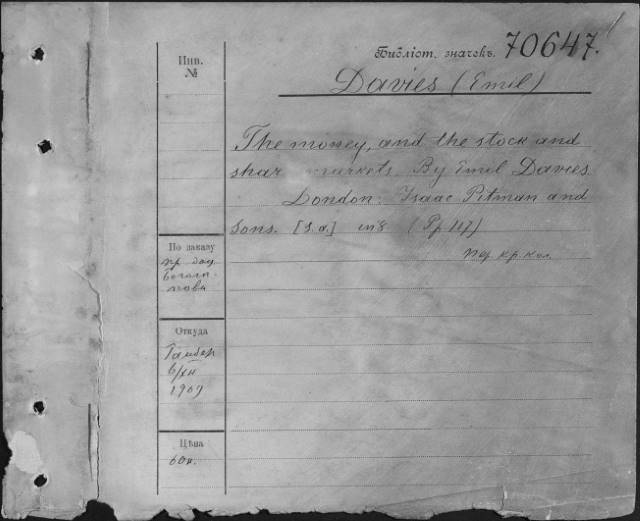 Инв.
№
Библіот. значекъ. 70647.
Davies (Emil)
The money, and the stock and
shar markets. By Emil Davies.
London: Isaac Pitman and
Sons. [S.a.] in 8 (Pp 117)
пер. кр. кол.
По заказу
пр. доц
Боголѣ-
пова
Откуда
Гамбер
6/XII
1909
Цѣна
60к.